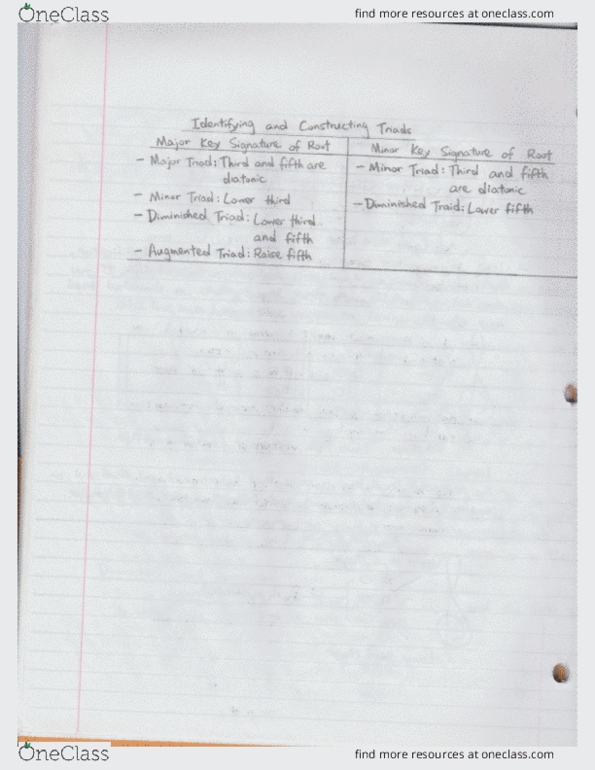 OneClass
find more resources at oneclass.com
Identifying and Constructing Triads
Major Key Signature of Root
Minor Key Signature of Root
- Major Triad: Third and fifth are
diatonic
- Minor Triad: Lower third
- Diminished Triad: Lower third
and fifth
- Augmented Triad: Raise fifth
- Minor Triad: Third and fifth
are diatonic
- Diminished Traid: Lower fifth
OneClass
find more resources at oneclass.com